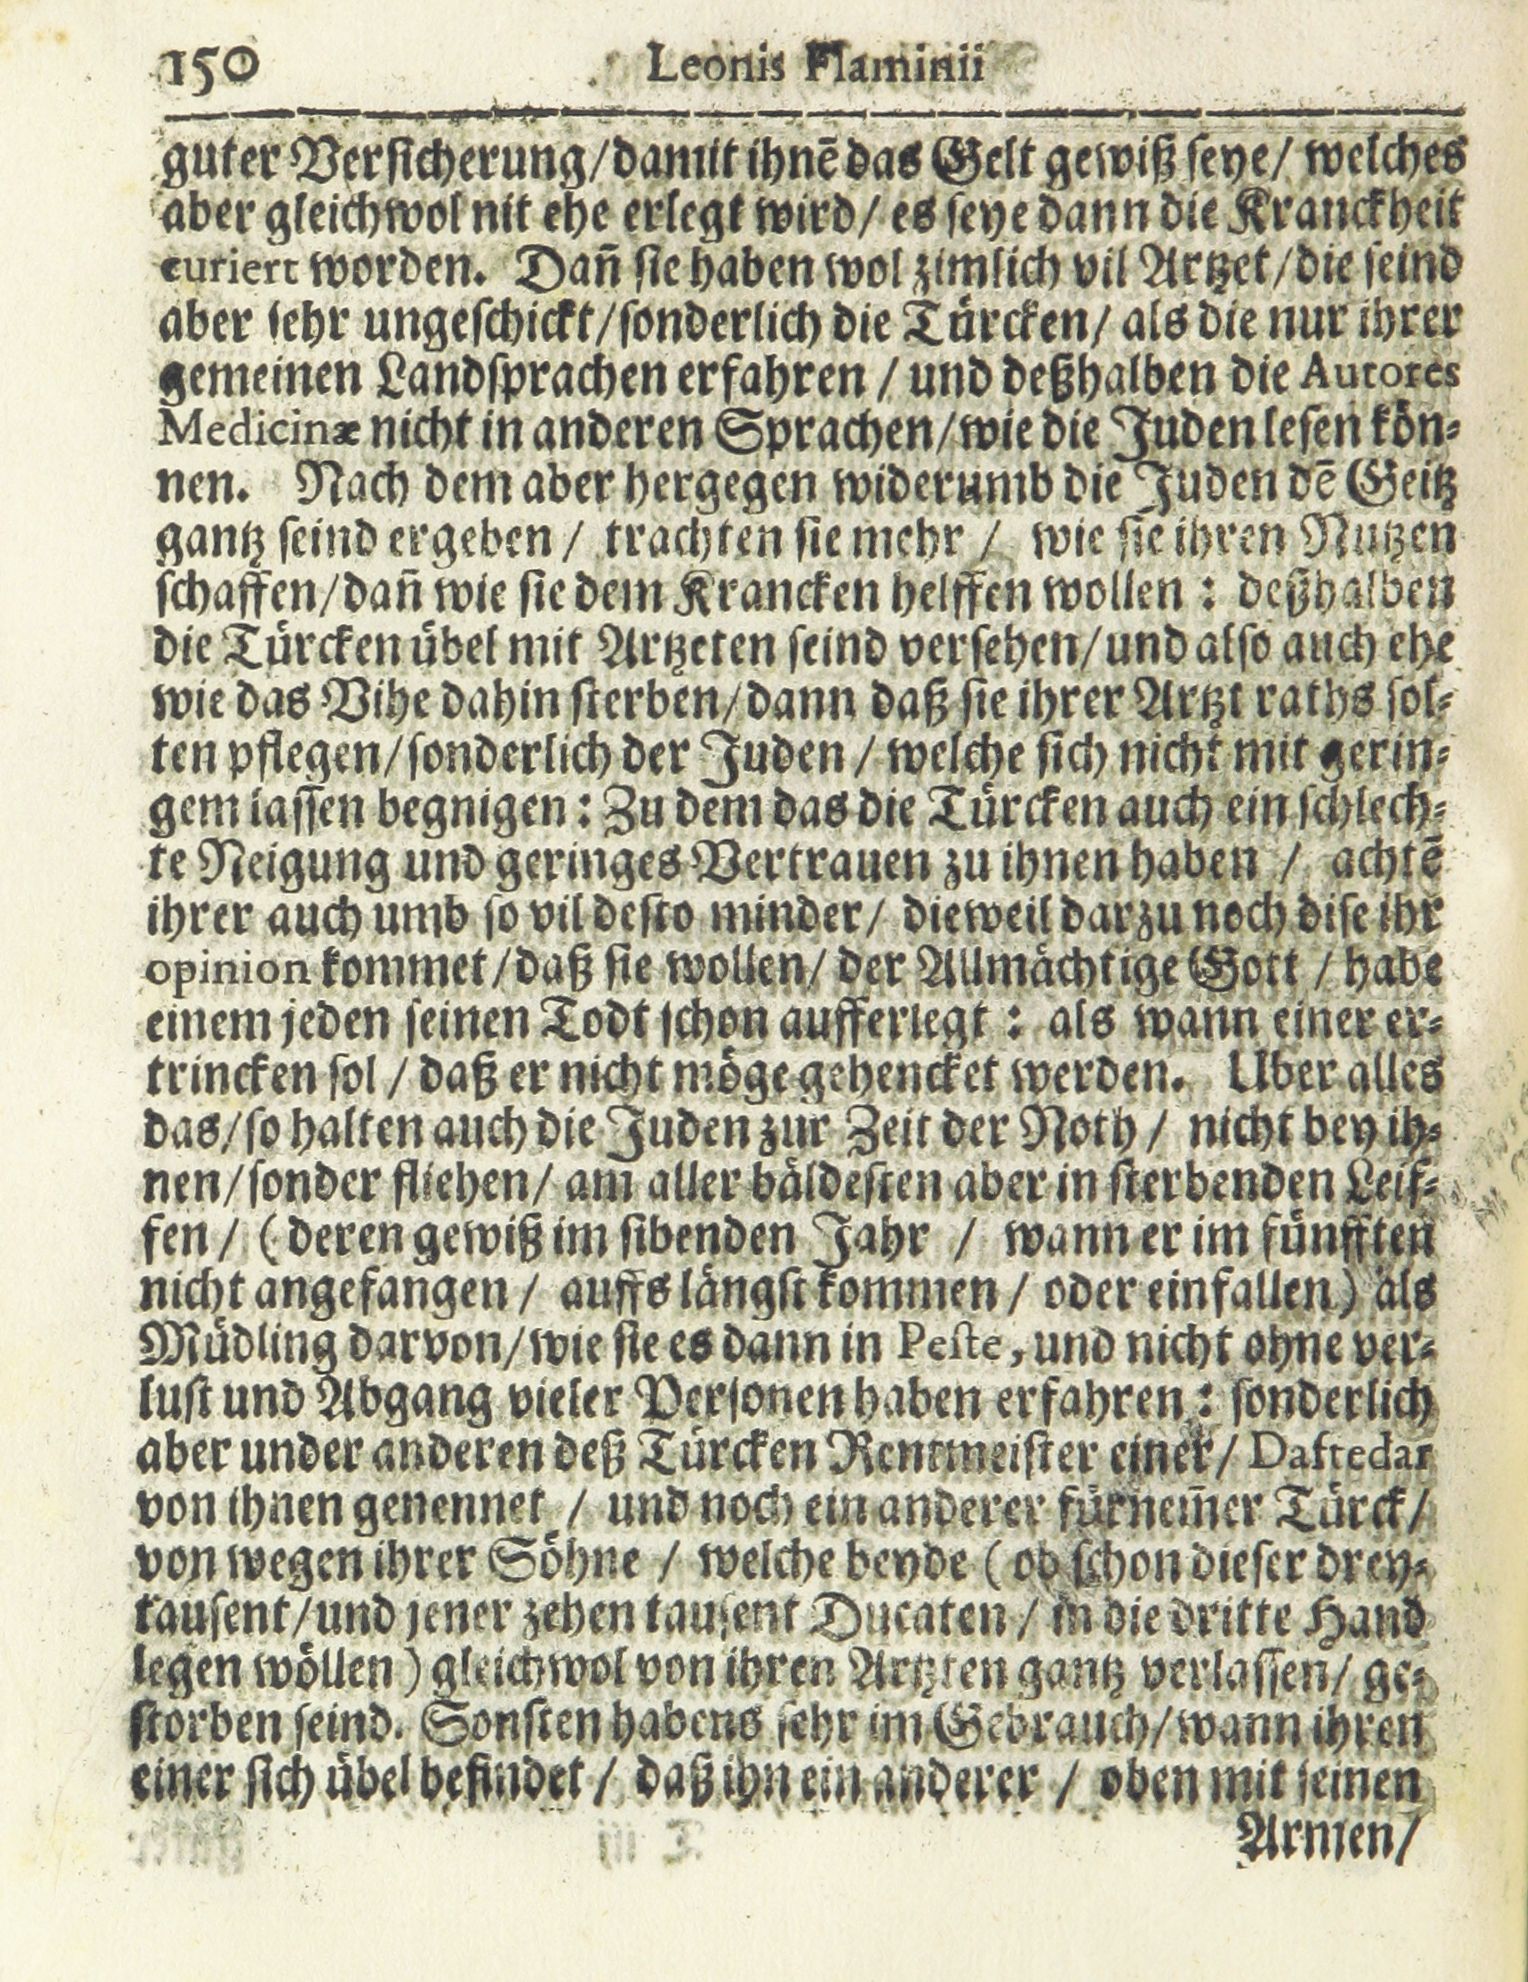 150 Leonis Flaminii
guter Versicherung/damit ihnē das Gelt gewiß seye/ welches
aber gleichwol nit ehe erlegt wird/ es seye dann die Kranckheit
curiert worden. Dañ sie haben wol zimlich vil Artzet/die seind
aber sehr ungeschickt/sonderlich die Türcken/ als die nur ihrer
gemeinen Landsprachen erfahren / und deßhalben die Autores
Medicinæ nicht in anderen Sprachen/wie die Juden lesen kön-
nen. Nach dem aber hergegen widerumb die Juden dē Geitz
gantz seind ergeben / trachten sie mehr / wie sie ihren Nutzen
schaffen/dañ wie sie dem Krancken helffen wollen : deßhalben
die Türcken übel mit Artzeten seind versehen/und also auch ehe
wie das Vihe dahin sterben/dann daß sie ihrer Artzt raths sol-
ten pflegen/sonderlich der Juden / welche sich nicht mit gerin-
gem lassen begnigen : Zu dem das die Türcken auch ein schlech-
te Neigung und geringes Vertrauen zu ihnen haben / achtē
ihrer auch umb so vil desto minder/ dieweil darzu noch dise ihr
opinion kommet/daß sie wollen/ der Allmächtige Gott / habe
einem jeden seinen Todt schon aufferlegt : als wann einer er-
trincken sol / daß er nicht möge gehencket werden. Uber alles
das/so halten auch die Juden zur Zeit der Noth / nicht bey ih-
nen/sonder fliehen/ am aller bäldesten aber in sterbenden Leif-
fen / (deren gewiß im sibenden Jahr / wann er im fünfften
nicht angefangen / auffs längst kommen / oder einfallen) als
Müdling darvon/wie sie es dann in Peste, und nicht ohne ver-
lust und Abgang vieler Personen haben erfahren : sonderlich
aber under anderen deß Türcken Rentmeister einer/ Daftedar
von ihnen genennet / und noch ein anderer fürnem̄er Türck/
von wegen ihrer Söhne / welche beyde (ob schon dieser drey-
tausent/und jener zehen tausent Ducaten / in die dritte Hand
legen wöllen) gleichwol von ihren Artzten gantz verlassen/ ge-
storben seind. Sonsten habens sehr im Gebrauch/wann ihren
einer sich übel befindet / daß ihn ein anderer / oben mit seinen
Armen/